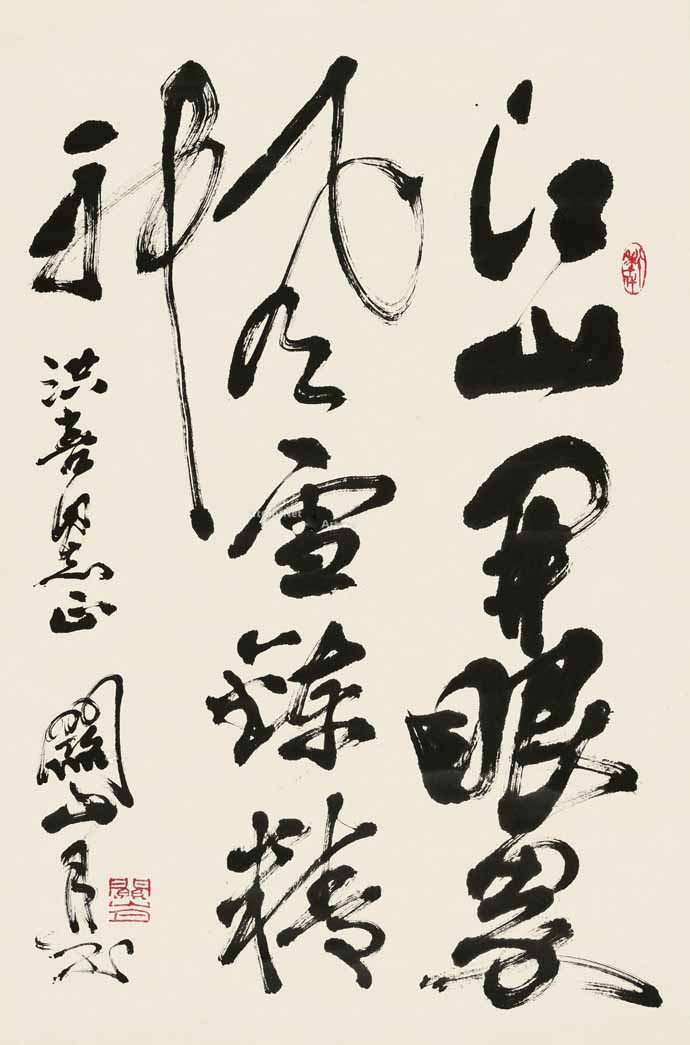 江山開眼界
風雪鍊精
神
洪喜同志正
關山月